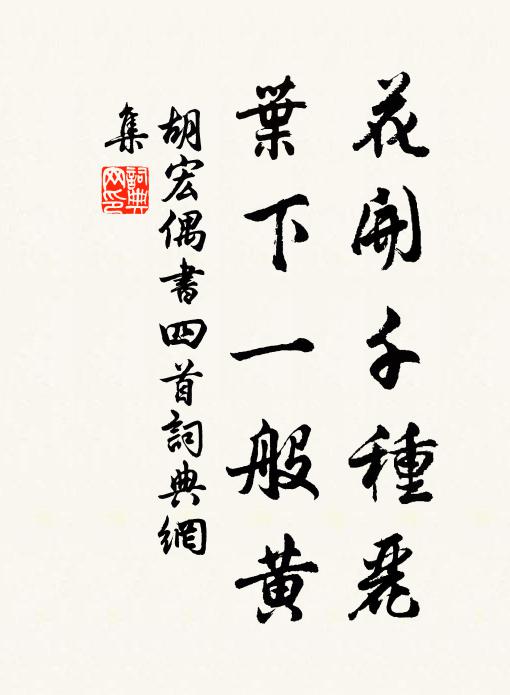 花開千種麗
葉下一般黃
胡宏偶書四首詞典網
集
詞典
网印